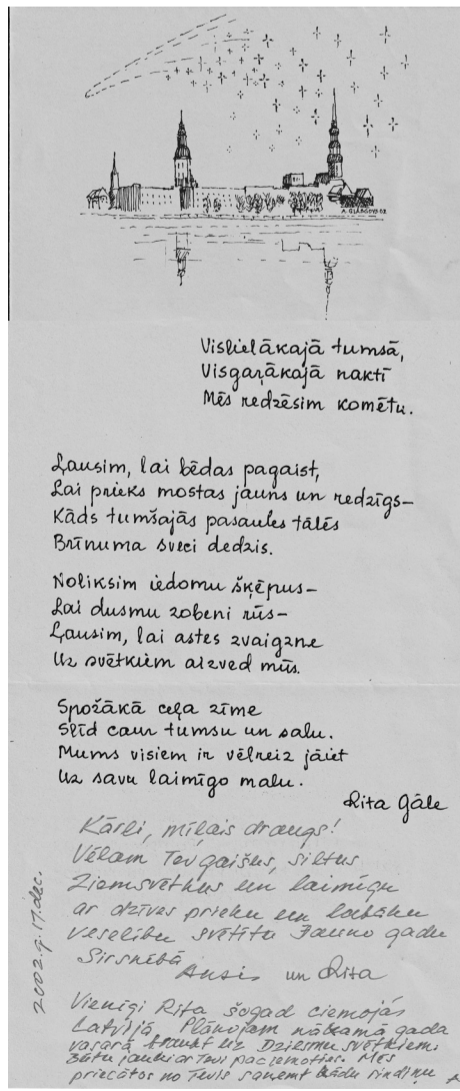 A. GLĀRGTIS 02
Vislielākajā tumsā,
Visgaŗākajā naktī
Mēs redzēsim komētu.
Ļausim, lai bēdas pagaist,
Lai prieks mostas jauns un redzīgs—
Kāds tumšajās pasaules tālēs
Brīnuma sveci dedzis.
Noliksim iedomu šķēpus—
Lai dusmu zobeni rūs—
Ļausim, lai astes zvaigzne
Uz svētkiem aizved mūs.
Spožākā ceļa zīme
Slīd caur tumsu un salu.
Mums visiem ir vēlreiz jāiet
Uz savu laimīgo malu.
Rita Gāle
Kārli, mīļais draugs!
Vēlam Tev gaišus, siltus
Ziemsvētkus un laimīgu
ar dzīves prieku un labāku
veselību svētītu Jauno gadu
Sirsnībā
Ansis un Rita
2002.g. 17. dec.
Vienīgi Rita šogad ciemojās
Latvijā. Plānojam nākamā gada
vasarā braukt uz Dziesmu svētkiem.
Būtu jauki ar Tevi paciemoties. Mēs
priecātos no Tevis saņemt kādu rindiņu